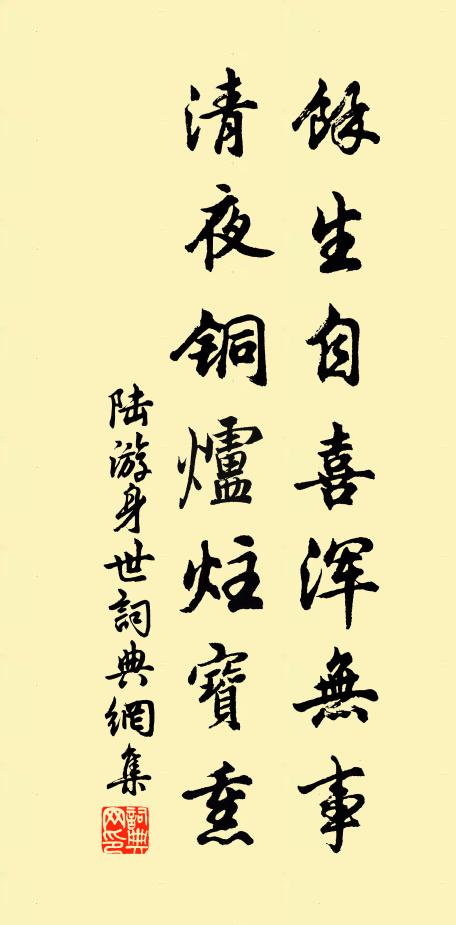 餘生自喜浑無事
清夜铜爐炷寶熏
陆游身世詞典網集
詞典网印